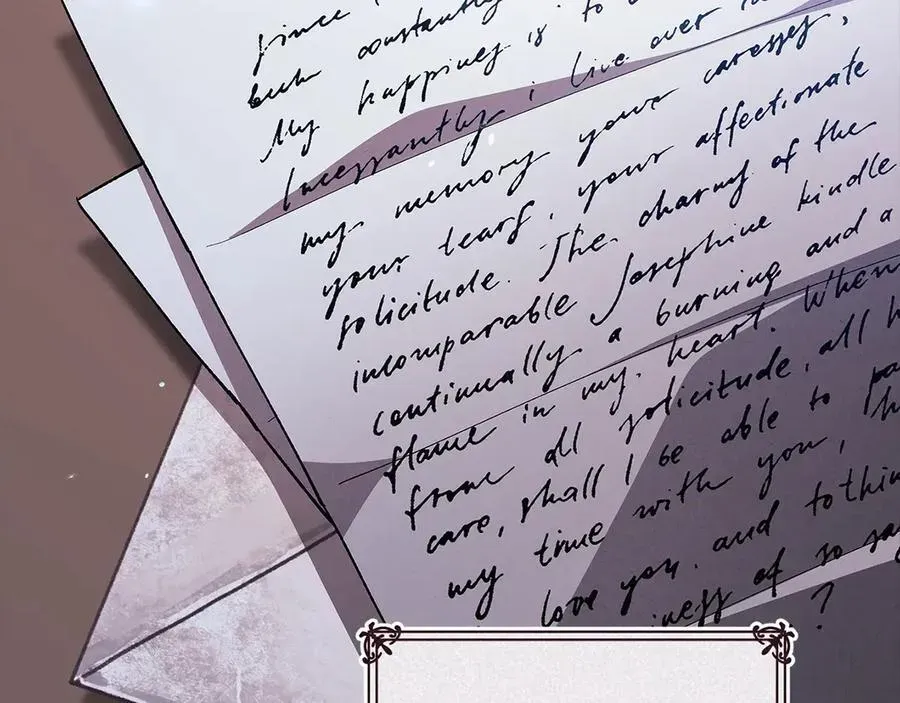 since
but constantly
My happines is to
Incessantly i live over in
my memory your caresses,
your tears, your affectionate
solicitude. The charms of the
incomparable Josephine kindle
continually a burning and a
flame in my heart. When
from all solicitude, all h
care, shall I be able to pa
my time with you, h
love you, and tothin
iness of so say
?